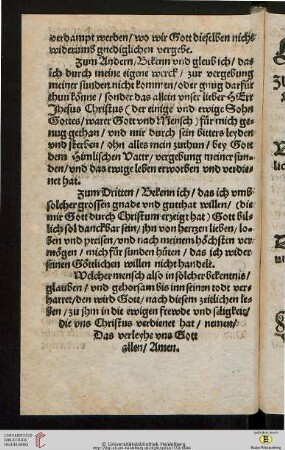 verdampt werden/ wo wir Gott dieselben nicht
widerumb gnediglichen vergebe.
Zum Andern/ Bekenn vnd gleub ich/ das
ich durch meine eigene werck/ zur vergebung
meiner sunden nicht kommen/ oder gnug darfür
thun könne/ sonder das allein vnser lieber HErr
Jhesus Christus (der einige vnd ewige Sohn
Gottes/ warer Gott vnd Mensch) für mich ge-
nug gethan/ vnd mir durch sein bitters leyden
vnd sterben/ ohn alles mein zuthun/ bey Gott
dem Himlischen Vattr/ vergebung meiner sun-
den/ vnd das ewige leben erworben vnd verdie-
net hat.
Zum Dritten/ Bekenn ich/ das ich vmb
solcher grossen gnade vnd gutthat willen/ (die
mir Gott durch Christum erzeigt hat) Gott bil-
lich sol danckbar sein/ ihn von hertzen lieben/ lo-
ben vnd preisen/ vnd nach meinem höchsten ver-
mögen/ mich für sunden hüten/ das ich wider
seinen Göttlichen willen nicht handele.
Welcher mensch also in solcher bekentnis/
glauben/ vnd gehorsam bis inn seinen todt ver-
harret/ den wird Gott/ nach diesem zeitlichen le-
ben/ zu ihm in die ewigen frewde vnd seligkeit/
die vns Christus verdienet hat/ nemen/
Das verleyhe vns Gott
allen/ Amen.
© Universitätsbibliothek Heidelberg